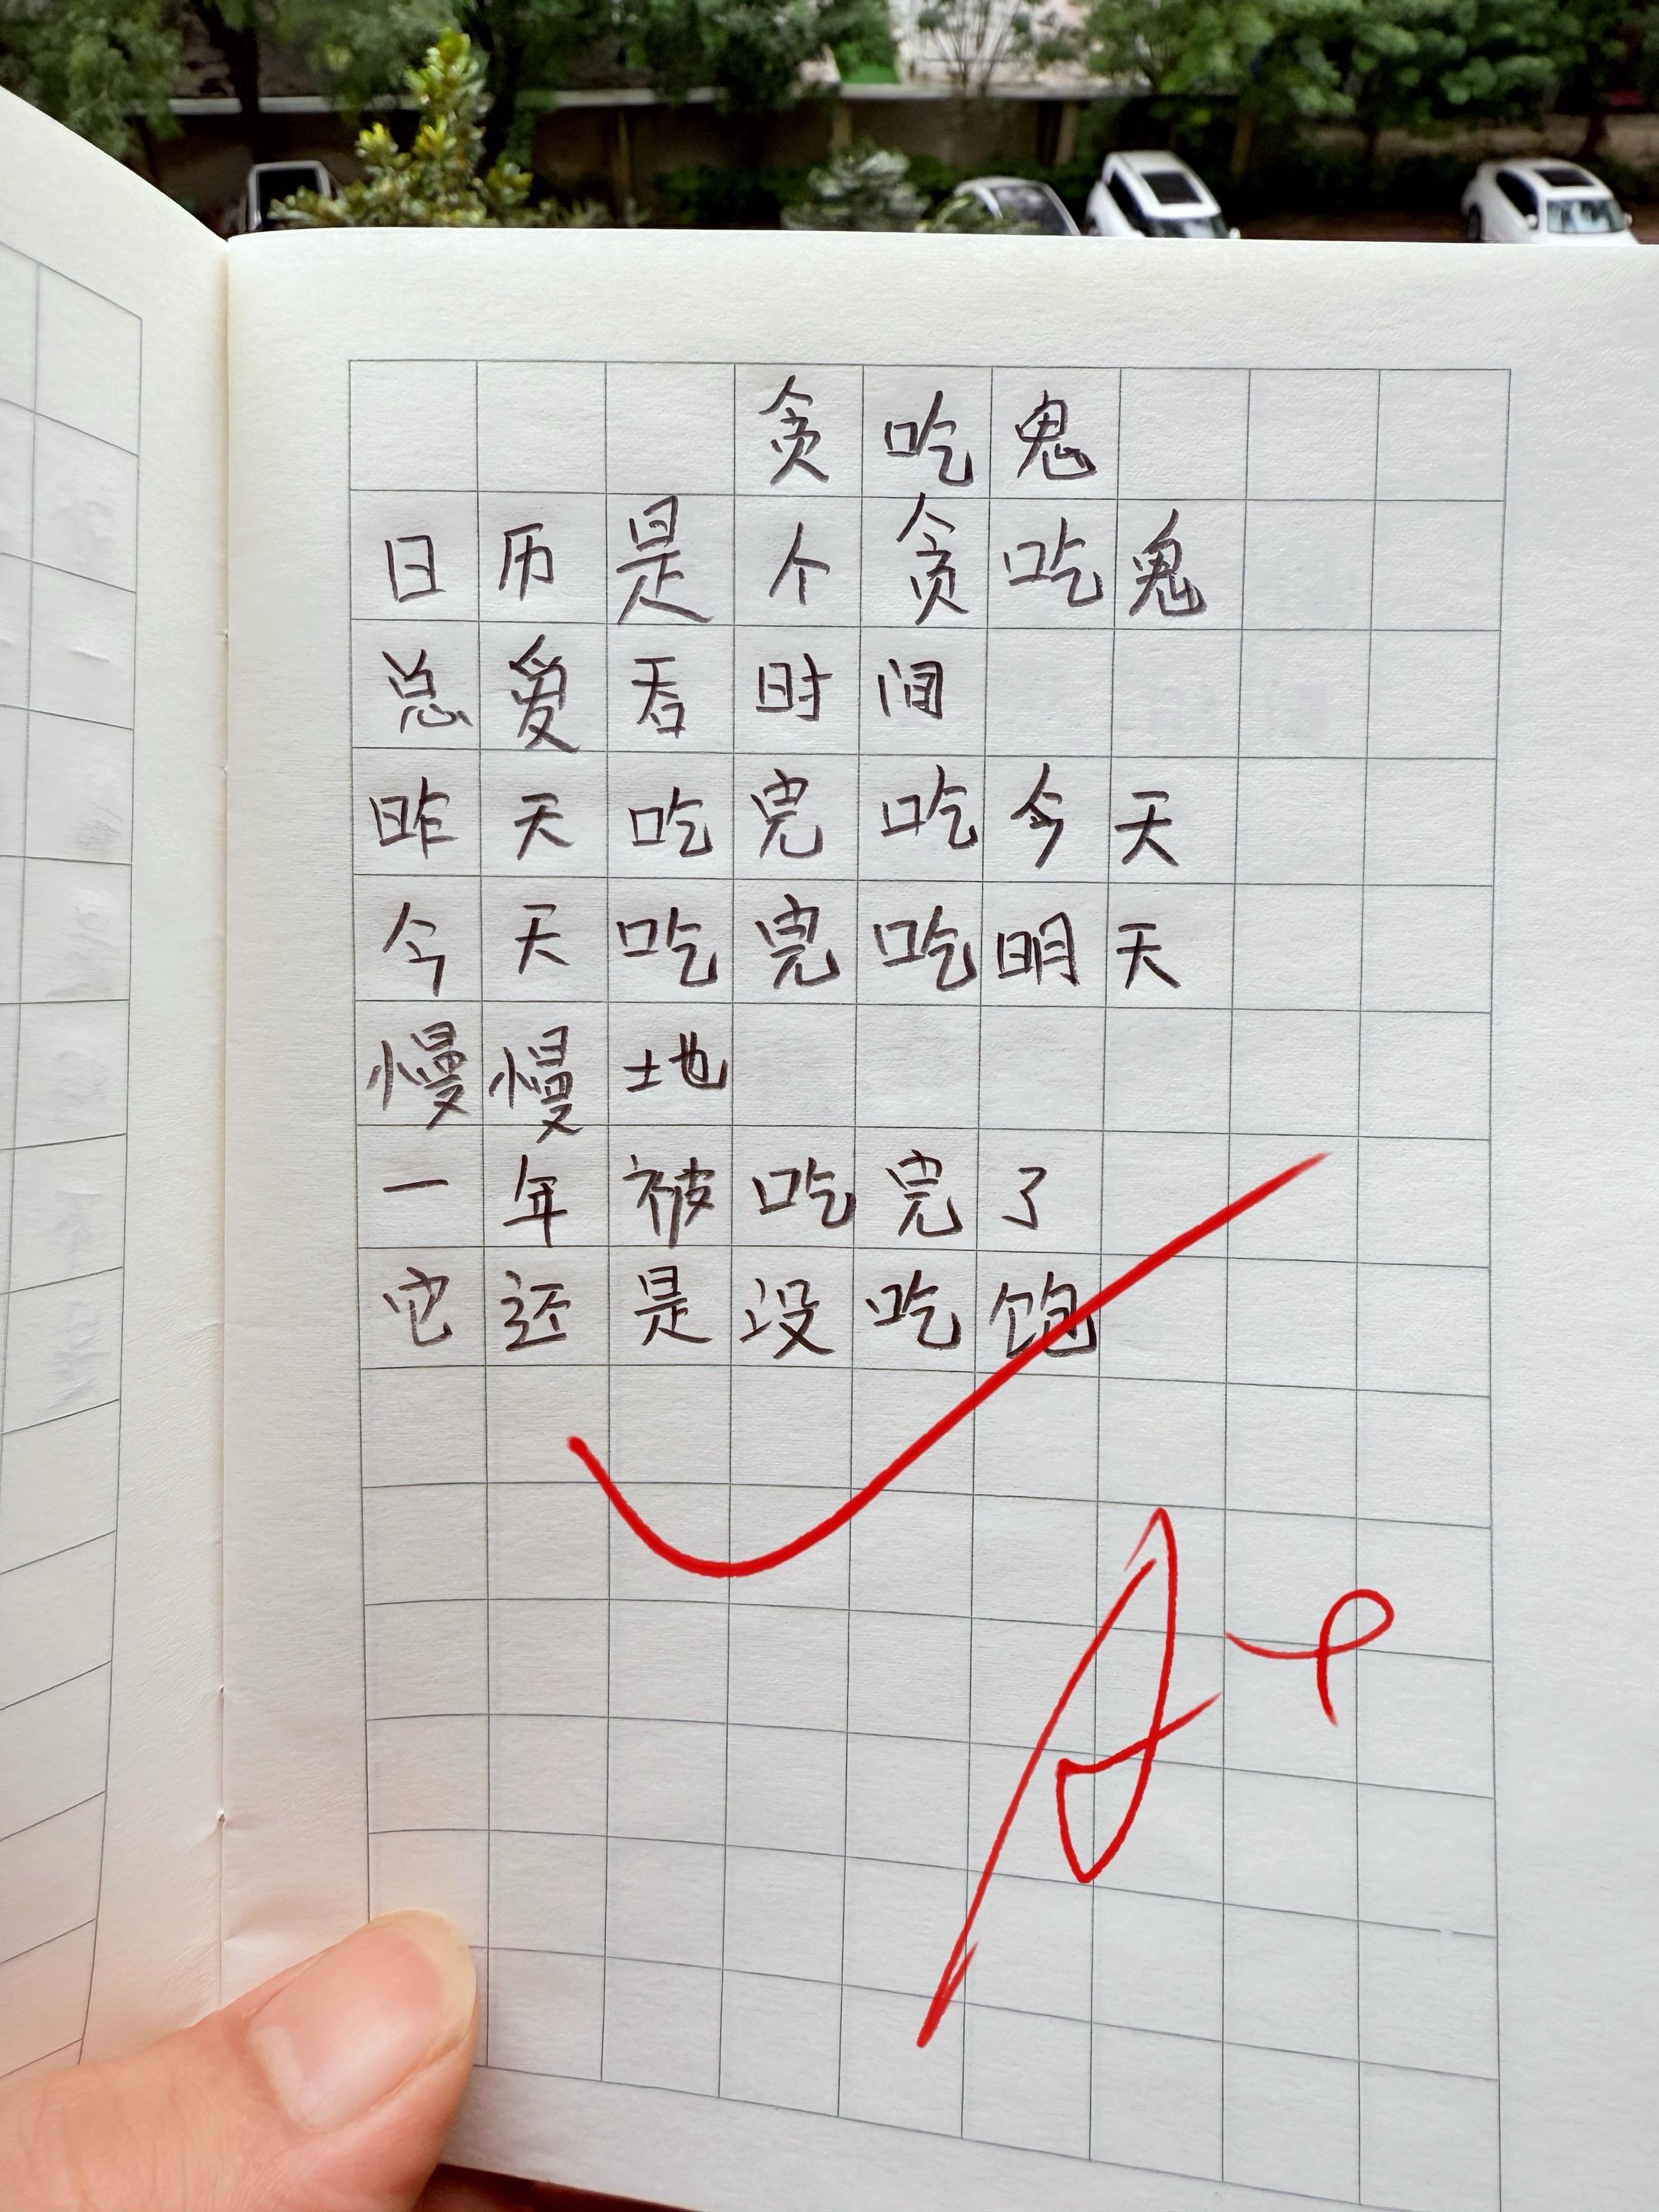 贪吃鬼
日历是个贪吃鬼
总爱吞时间
昨天吃完吃今天
今天吃完吃明天
慢慢地
一年被吃完了
它还是没吃饱
A+